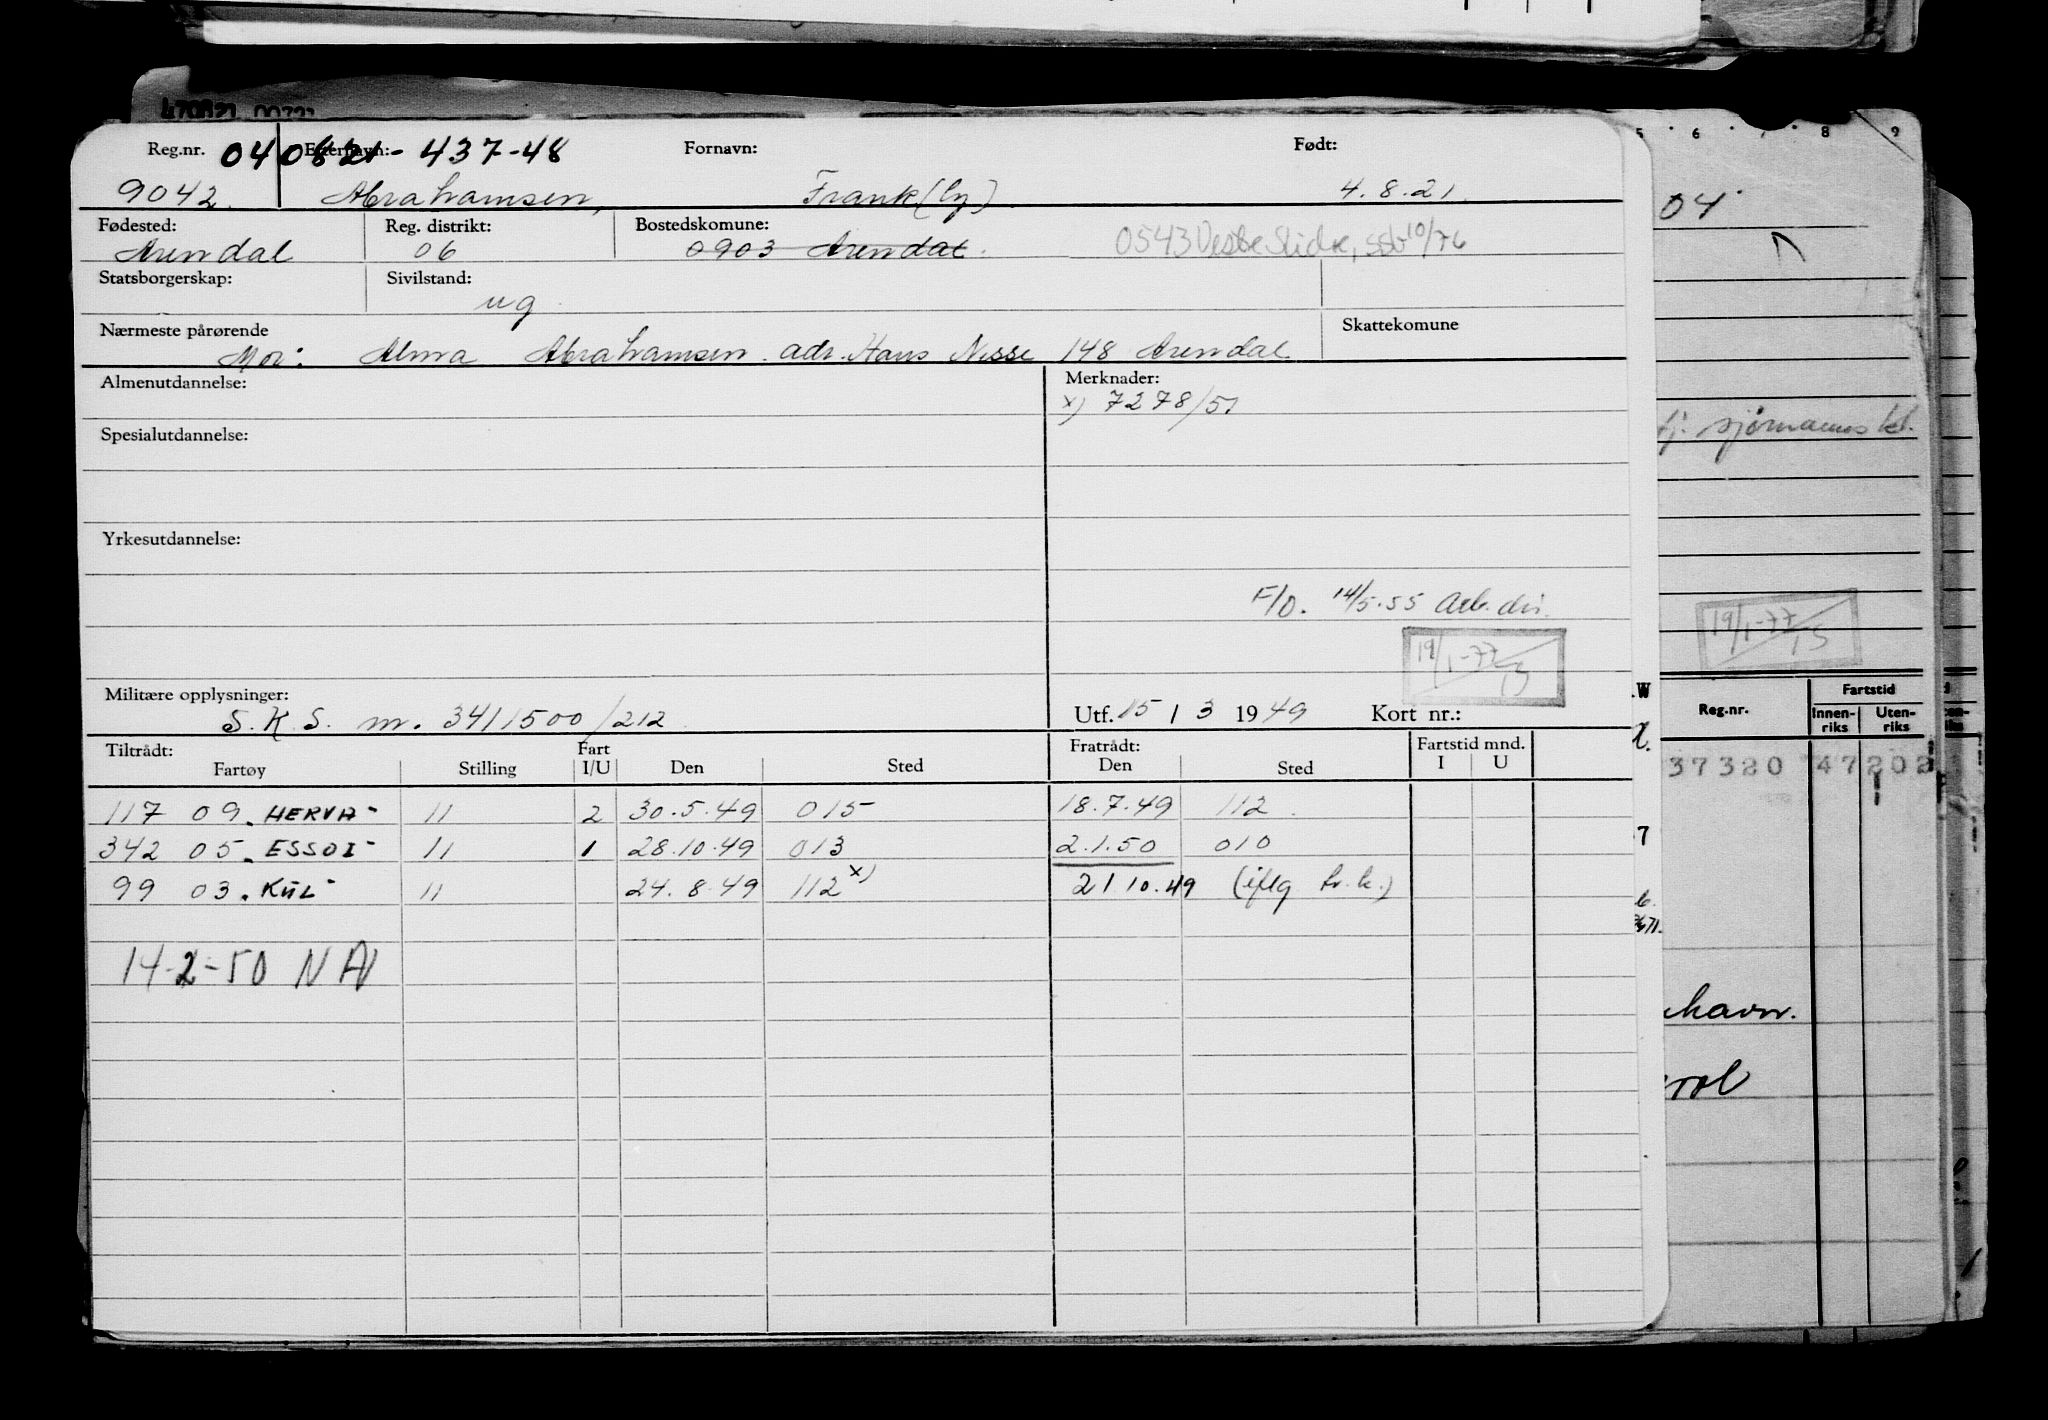 470821 00721
Reg.nr. 040821-437-48 Etternavn: Fornavn: Født:
9042. Abrahamsen, Frank (Cy) 4.8.21.
Fødested: Reg. distrikt: Bostedskomune:
Arendal 06 0903 Arendal. 0543 Vestre Slidre, SSB 10/76
Statsborgerskap: Sivilstand:
ug.
Nærmeste pårørende Skattekomune
Mor: Alma Abrahamsen adr. Hans Nisse 148 Arendal
Almenutdannelse: Merknader:
x) 7278/51
Spesialutdannelse:
Yrkesutdannelse:
F/O. 14/5.55 Arb.dir.
19/1-77
Militære opplysninger:
S.K.S. nr. 3411500/212
Utf. 15 / 3 1949 Kort nr.:
Tiltrådt: Fart Fratrådt: Fartstid mnd.
Fartøy Stilling I/U Den Sted Den Sted I U
117 09. HERVA- 11 2 30.5.49 015 18.7.49 112
342 05. ESSOI- 11 1 28.10.49 013 2.1.50 010
99 03. KIIL- 11 24.8.49 112 x) 21 10.49 (iflg hr.k.)
14-2-50 NAV
5 6 7 8 9
04
sjømannskl.
19/1-77
Reg.nr. Fartstid
Innen-riks Uten-riks
37320 47 202
havn.